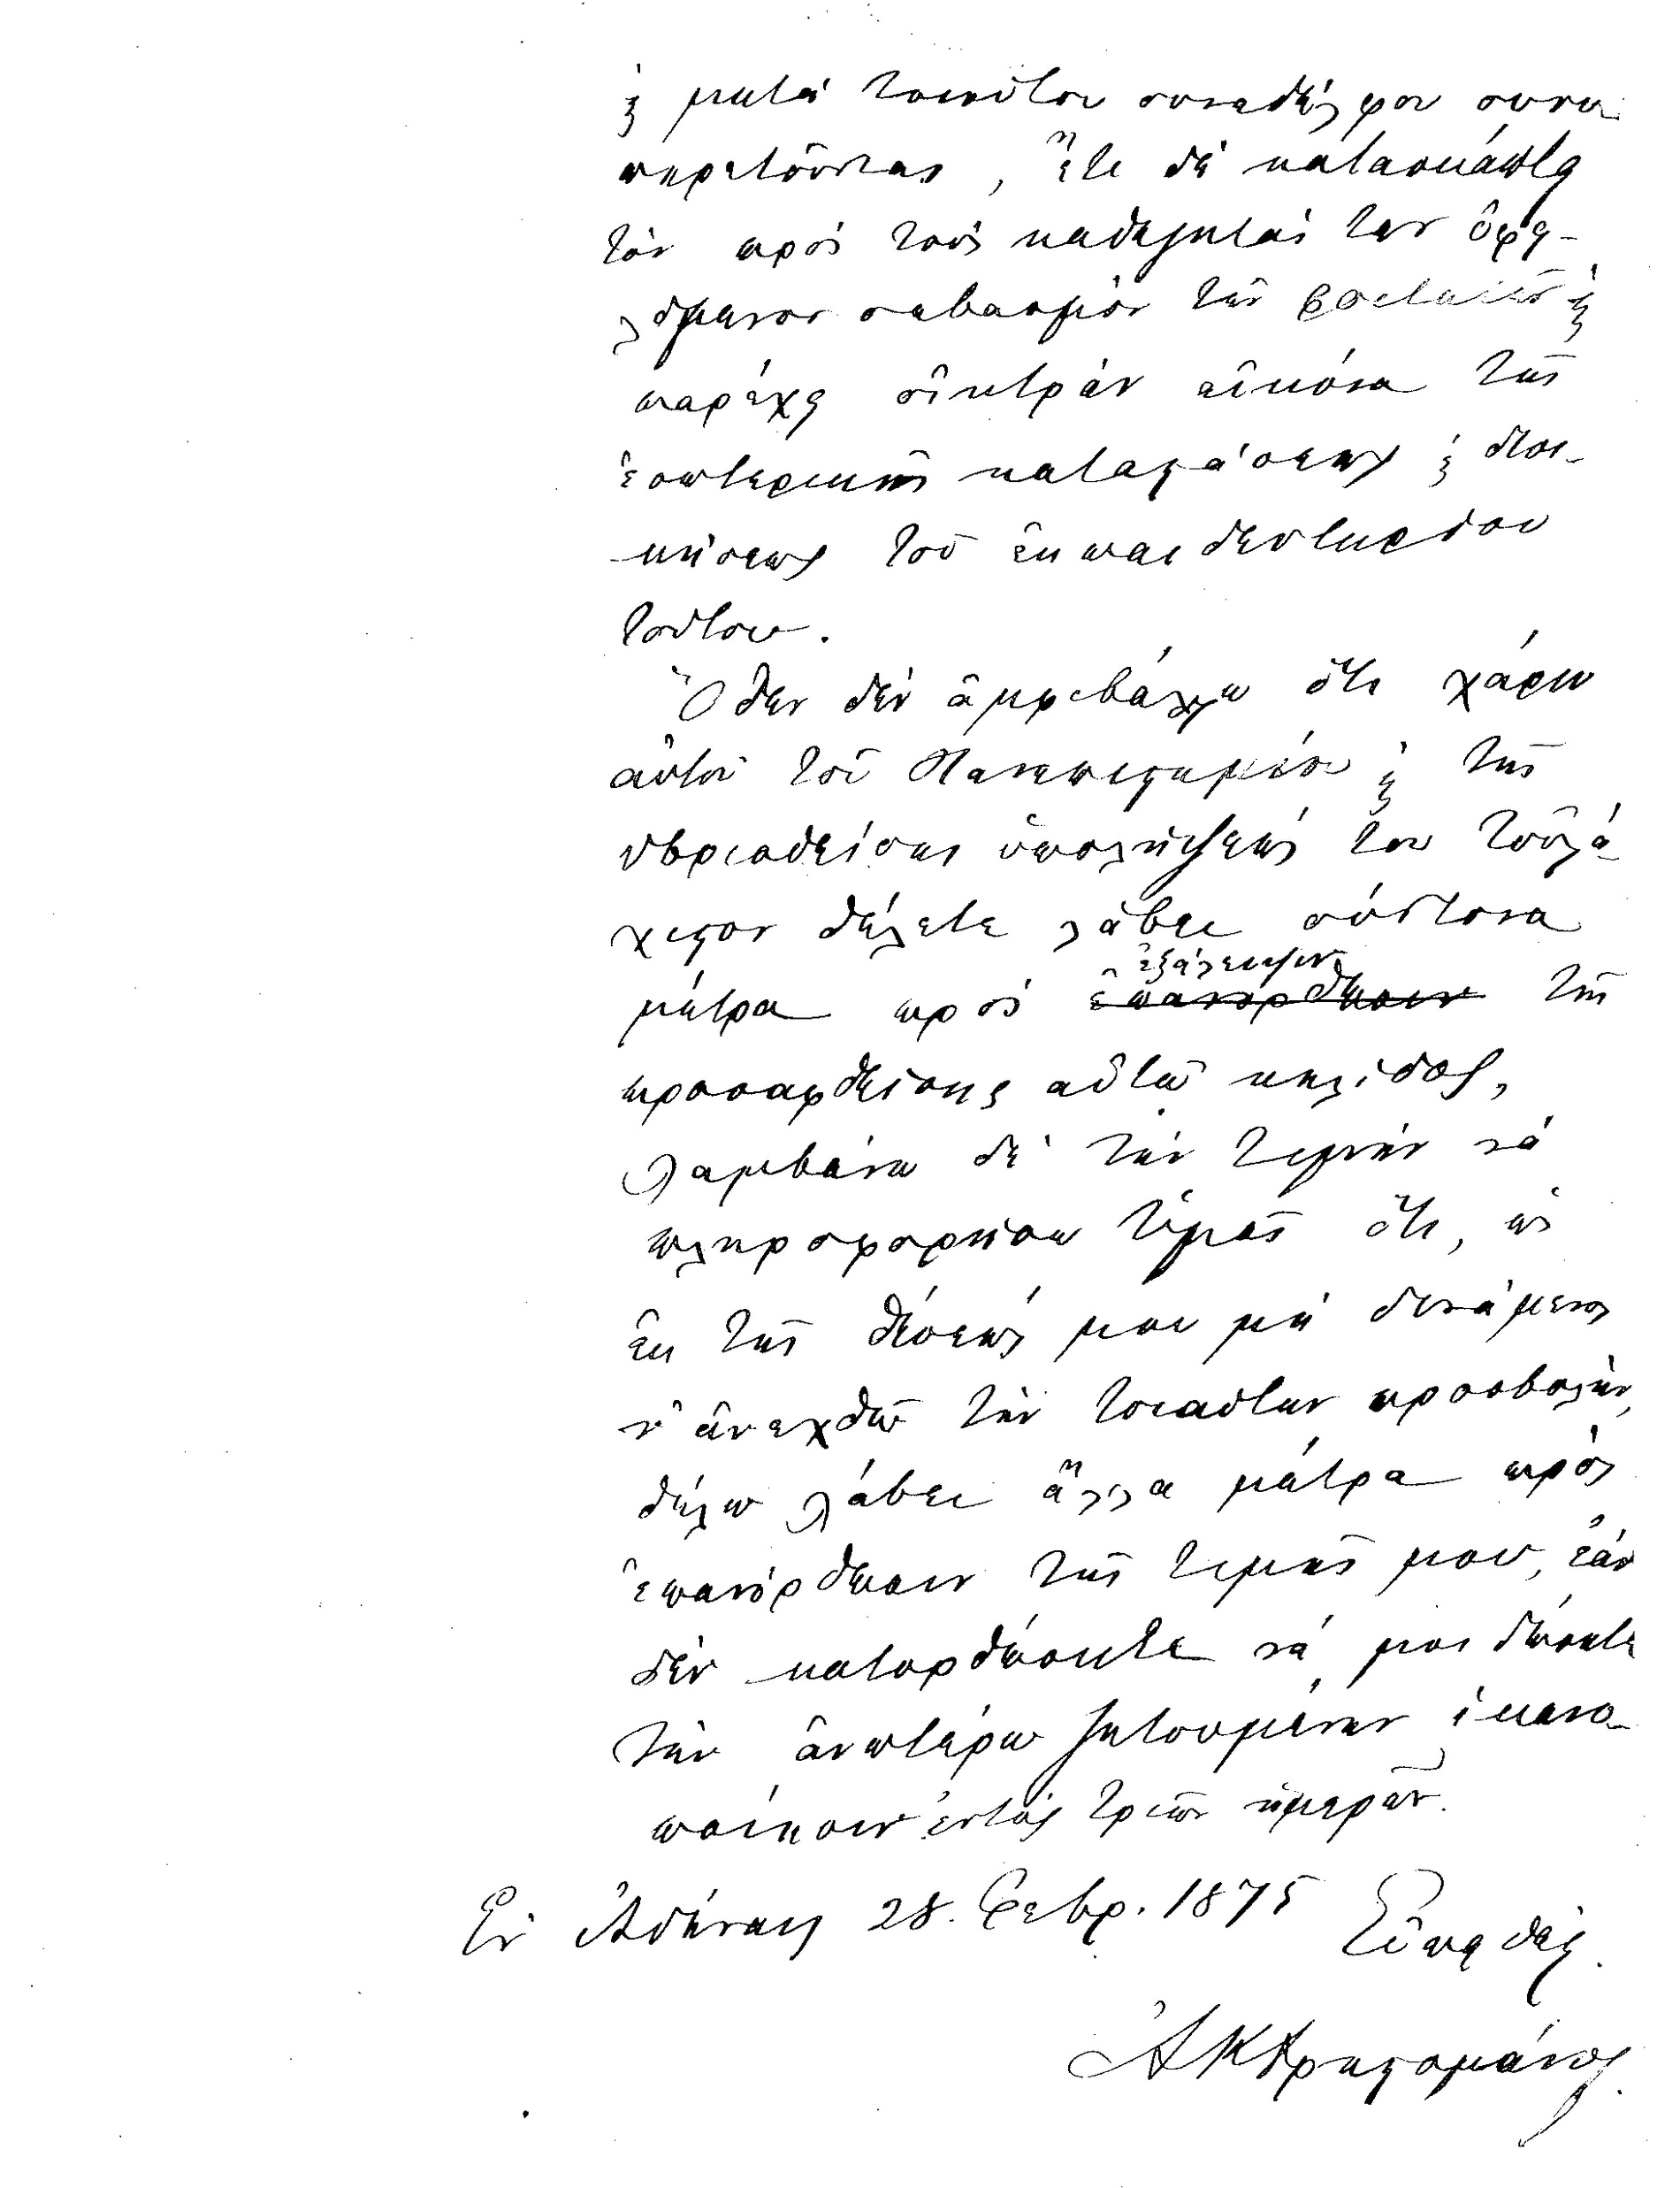 ϗ μετὰ τοιούτου συναδέλφου συνυ-
πηρετοῦντας, ἔτι δὲ κατασκάπτει
τὸν πρὸς τοὺς καθηγητάς των ὀφει-
λόμενον σεβασμὸν τῶν φοιτητῶν ϗ
παρέχει οἰκτρὰν εἰκόνα τῆς
ἐσωτερικῆς καταστάσεως ϗ διοι-
κήσεως τοῦ ἐκπαιδευτηρίου
τούτου.
Ὅθεν δὲν ἀμφιβάλλω ὅτι χάριν
αὐτοῦ τοῦ Πανεπιστημίου ϗ τῆς
ὑβρισθείσης ὑπολήψεώς του τοὐλά-
χιστον θέλετε λάβει σύντονα
μέτρα πρὸς ἐξάλειψιν τῆς
προσαφθείσης αὐτῷ κηλῖδος,
λαμβάνω δὲ τὴν τιμὴν νὰ
πληροφορήσω Ὑμᾶς ὅτι, ὡς
ἐκ τῆς θέσεώς μου μὴ δυνάμενος
ν' ἀνεχθῶ τὴν τοιαύτην προσβολήν,
θέλω λάβει ἄλλα μέτρα πρὸς
ἐπανόρθωσιν τῆς τιμῆς μου, ἐὰν
δὲν κατορθώσητε νὰ μοι δώσητε
τὴν ἀνωτέρω ζητουμένην ἱκανο-
ποίησιν ἐντὸς τριῶν ἡμερῶν.
Ἐν Ἀθήναις 28. Φεβρ. 1875 Εὐπειθής.
Ἀ Κ Χρηστομάνος